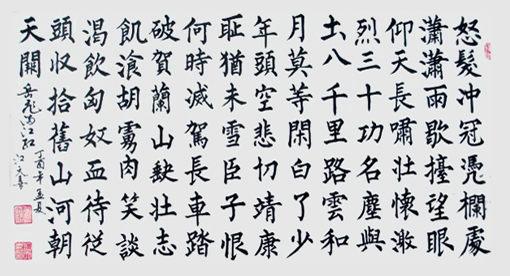 怒髮冲冠凴欄處
瀟瀟雨歇擡望眼
仰天長嘯壯懷激
烈三十功名塵與
土八千里路雲和
月莫等閑白了少
年頭空悲切靖康
耻猶未雪臣子恨
何時滅駕長車踏
破賀蘭山缺壯志
飢湌胡虜肉笑談
渴飲匈奴血待從
頭収拾舊山河朝
天闕
岳飛滿江紅
酉年孟夏